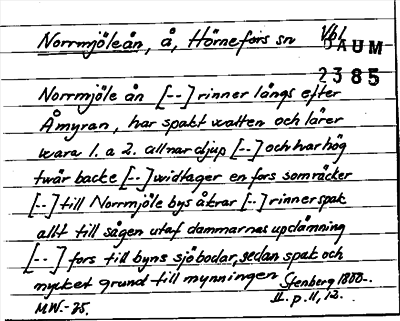 Norrmjöleån, å, Hörnefors sn Vbl
DAUM
2385
Norrmjöle ån [--] rinner långs efter
Åmyran, har spakt vatten och lärer
wara 1. a 2. allnar djup [--] och har hög
twår backe [--] widtager en fors som räcker
[--] till Norrmjöle bys åkrar [--] rinner spak
allt till sågen utaf dammarnas updämning
[--] fors till byns sjöbodar, sedan spak och
mycket grund till mynningen
Stenberg 1800-.
II. p. 11, 12.
MW.-75.